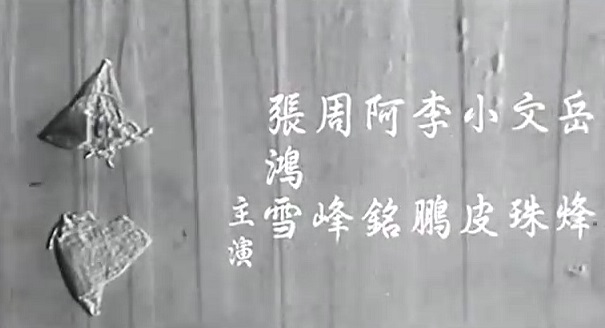 岳烽
文珠
小皮
李鵬
阿銘
周峰
張鴻雪
主演